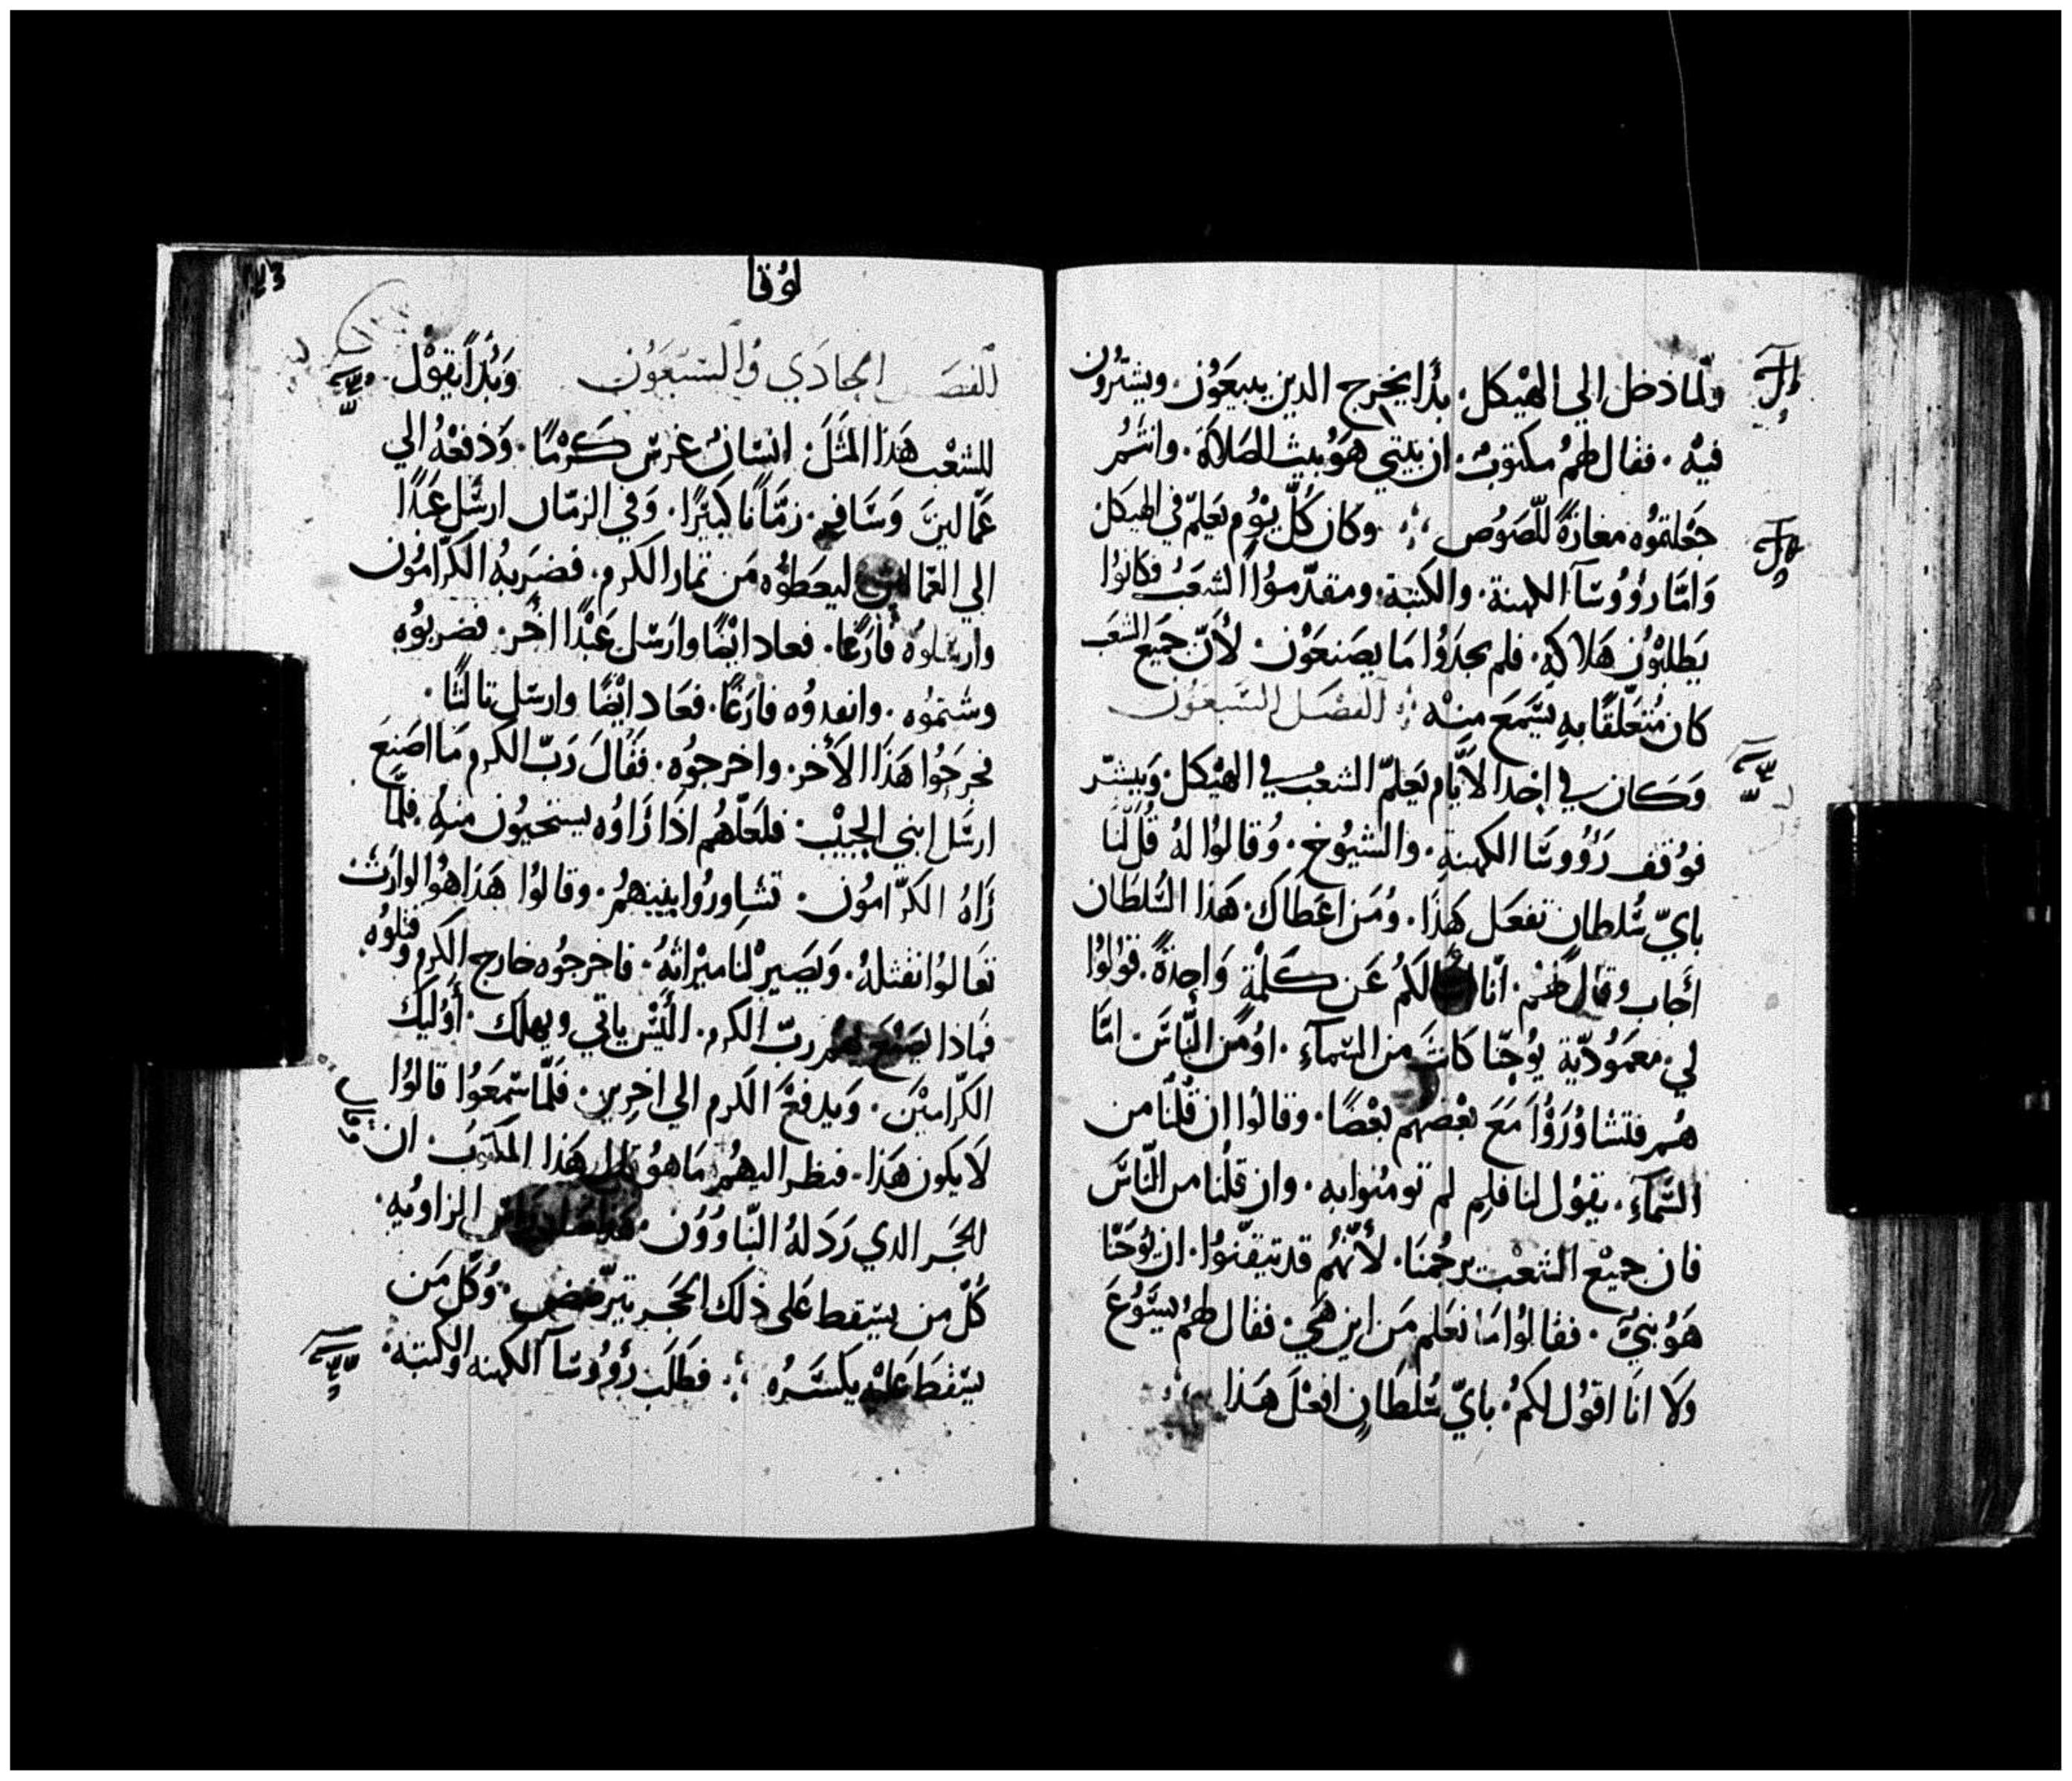 ولما دخل الي الهيكل. بدا يخرج الدين يبيعون. ويشترون
فيه. فقال لهم مكتوب. ان بيتي هو بيت الصلاة. وانتم
جعلتموه مغارة للصوص وكان كل يوم يعلم في الهيكل
واما رووسا الكهنة. والكتبة. ومقدموا الشعب فكانوا
يطلبون هلاكه. فلم يجدوا ما يصنعون. لأن جميع الشعب
كان متعلقا به يسمع منه الفصل السبعون
وكان في إحدا الأيام يعلم الشعب في الهيكل. ويبشر
فوقف رووسا الكهنة. والشيوخ. وقالوا له قل لنا
باي سلطان تفعل هذا. ومن اعطاك. هذا السلطان
أجاب وقال لهم. انا اسالكم عن كلمة واحدة. قولوا
لي. معمودية يوحنا كانت من السماء. او من الناس اما
هم فتشاوروا مع بعضهم بعضا. وقالوا ان قلنا من
السماء. يقول لنا فلم لم تومنوا به. وان قلنا من الناس
فان جميع الشعب يرجمنا. لأنهم قد تيقنوا. ان يوحنا
هو نبي. فقالوا ما نعلم من اين هي. فقال لهم يسوع
ولا انا اقول لكم. باي سلطان افعل هذا
لوقا
الفصل الحادي والسبعون وبدا يقول
للشعب هذا المثل. انسان غرس كرما. ودفعه الي
عمالين وسافر. زمانا كبيرا. وفي الزمان ارسل عبدا
الي العمالين ليعطوه من ثمار الكرم. فضربه الكرامون
وارسلوه فارغا. فعاد ايضا وارسل عبدا اخر. فضربوه
وشتموه. وانفدوه فارغا. فعاد ايضا وارسل تالتا.
فجرحوا هذا الأخر. واخرجوه. فقال رب الكرم ما اصنع
ارسل ابني الحبيب. فلعلهم اذا راوه يستحيون منه. فلما
راه الكرامون. تشاوروا بينهم. وقالوا هذا هو الوارث
تعالوا نقتله. ويصير لنا ميراثه. فاخرجوه خارج الكرم وقتلوه.
فماذا يصنع بهم رب الكرم. أليس ياتي ويهلك. أوليك
الكرامين. ويدفع الكرم الي اخرين. فلما سمعوا قالوا
لا يكون هذا. فنظر اليهم ما هو هذا المكتوب. ان
الحجر الدي ردله البناوون. الزاويه.
كل من يسقط على ذلك الحجر يترضض. وكل من
يسقط عليه يكسره فطلب رووسا الكهنه والكتبه.